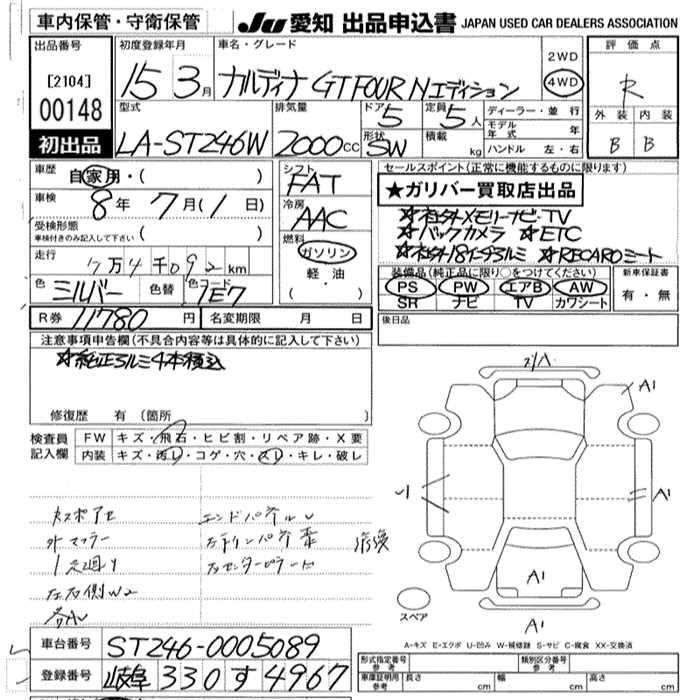 車内保管・守衛保管 JU 愛知 出品申込書 JAPAN USED CAR DEALERS ASSOCIATION
出品番号 初度登録年月 車名・グレード 評価点
[2104] 15 3月 カルディナ GTFOUR Nエディション 2WD 4WD R
00148 型式 排気量 ドア 定員 ディーラー・並行 外装 内装
初出品 LA-ST246W 2000cc 5 5人 モデル年式 年 B B
形状 SW 積載 kg ハンドル 左・右
車歴 自家用・( ) シフト FAT セールスポイント(正常に機能するものに限ります)
車検 8年 7月(1日) 冷房 AAC ★ガリバー買取店出品
受検形態 ( ) ☆社外メモリーナビ・TV
車検付きのみ記入して下さい 燃料 ☆バックカメラ ☆ETC
走行 7万4千092km ガソリン ☆社外18インチアルミ ☆RECAROシート
軽油 装備品(純正品に限り○をつけてください) 新車保証書
色 シルバー 色替 色コード 1E7 ( ・ ) PS PW エアB AW 有・無
SR ナビ TV カワシート
R券 11780円 名変期限 月 日 後日品
注意事項申告欄(不具合内容等は具体的に記入して下さい)
☆純正アルミ4本積込
修復歴 有 (箇所 A1
検査員 FW キズ・飛石・ヒビ割・リペア跡・X要
記入欄 内装 キズ・汚レ・コゲ・穴・スレ・キレ・破レ
カスポアセ エンドパネル
外マフラー A1
左右側W2 A1
スペア A1
A-キズ E-エクボ U-凹み W-補修跡 S-サビ C-腐食 XX-交換済
車台番号 ST246-0005089 形式指定番号 参考 類別区分番号 参考
登録番号 岐阜 330 す 4967 車庫証明用 参考 長さ cm 幅 cm 高さ cm